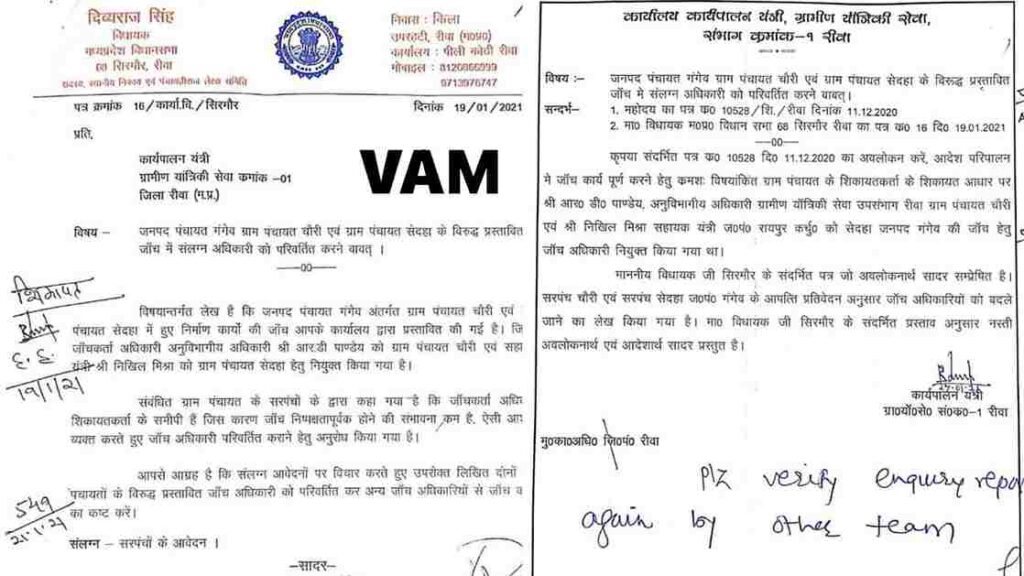 दिव्यराज सिंह
विधायक
मध्यप्रदेश विधानसभा
68 सिरमौर, रीवा
सदस्य, स्थानीय निकाय एवं पंचायतीराज लेखा समिति
निवास : किला
उपरहटी, रीवा (म०प्र०)
कार्यालय : पीली कोठी रीवा
मोबाइल :
पत्र क्रमांक 16/कार्या.वि./सिरमौर
दिनांक 19/01/2021
प्रति,
कार्यपालन यंत्री
ग्रामीण यांत्रिकी सेवा कमांक –01
जिला रीवा (म.प्र.)
VAM
विषय – जनपद पंचायत गंगेव ग्राम पंचायत चौरी एवं ग्राम पंचायत सेदहा के विरुद्ध प्रस्तावित
जाँच में संलग्न अधिकारी को परिवर्तित करने बावत् ।
——00——
शिकायत
19/1/21
विषयान्तर्गत लेख है कि जनपद पंचायत गंगेव अंतर्गत ग्राम पंचायत चौरी एवं
पंचायत सेदहा में हुए निर्माण कार्यो की जाँच आपके कार्यालय द्वारा प्रस्तावित की गई है। जि
जाँचकर्ता अधिकारी अनुविभागीय अधिकारी श्री आर.डी पाण्डेय को ग्राम पंचायत चौरी एवं सहा
यंत्री श्री निखिल मिश्रा को ग्राम पंचायत सेदहा हेतु नियुक्त किया गया है।
संबंधित ग्राम पंचायत के सरपंचों के द्वारा कहा गया है कि जाँचकर्ता अधि
शिकायतकर्ता के समीपी हैं जिस कारण जाँच निष्पक्षतापूर्वक होने की संभावना कम है, ऐसी आ
व्यक्त करते हुए जाँच अधिकारी परिवर्तित कराने हेतु अनुरोध किया गया है।
आपसे आग्रह है कि संलग्न आवेदनों पर विचार करते हुए उपरोक्त लिखित दोनों
पंचायतों के विरुद्ध प्रस्तावित जाँच अधिकारी को परिवर्तित कर अन्य जाँच अधिकारियों से जाँच क
का कष्ट करें।
549
21.1.21
संलग्न – सरपंचों के आवेदन ।
–सादर–
कार्यालय कार्यपालन यंत्री, ग्रामीण यॉत्रिकी सेवा,
संभाग कमांक–१ रीवा
विषय :– जनपद पंचायत गंगेव ग्राम पंचायत चौरी एवं ग्राम पंचायत सेदहा के विरुद्ध प्रस्तावित
जाँच मे संलग्न अधिकारी को परिवर्तित करने वावत्।
सन्दर्भ– 1. महोदय का पत्र क० 10528/शि./रीवा दिनांक 11.12.2020
2. मा० विधायक म०प्र० विधान सभा 68 सिरमौर रीवा का पत्र क० 16 दि० 19.01.2021
——00——
कृपया संदर्भित पत्र क० 10528 दि० 11.12.2020 का अवलोकन करें, आदेश परिपालन
मे जाँच कार्य पूर्ण करने हेतु कमशः विषयांकित ग्राम पंचायत के शिकायतकर्ता के शिकायत आधार पर
श्री आर० डी० पाण्डेय, अनुविभागीय अधिकारी ग्रामीण यॉत्रिकी सेवा उपसंभाग रीवा ग्राम पंचायत चौरी
एवं श्री निखिल मिश्रा सहायक यंत्री ज०पं० रायपुर कर्चु० को सेदहा जनपद गंगेव की जाँच हेतु
जाँच अधिकारी नियुक्त किया गया था।
माननीय विधायक जी सिरमौर के संदर्भित पत्र जो अवलोकनार्थ सादर सम्प्रेषित है।
सरपंच चौरी एवं सरपंच सेदहा ज०पं० गंगेव के आपत्ति प्रतिवेदन अनुसार जाँच अधिकारियों को बदले
जाने का लेख किया गया है। मा० विधायक जी सिरमौर के संदर्भित प्रस्ताव अनुसार नस्ती
अवलोकनार्थ एवं आदेशार्थ सादर प्रस्तुत है।
कार्यपालन यंत्री
ग्रा०यॉ०से० सं०क०–1 रीवा
मु०का०अधि० जि०पं० रीवा
Plz verify enquiry repo
again by other team